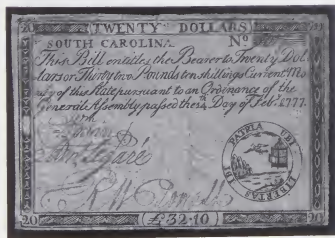 20 TWENTY DOLLARS 20
SOUTH CAROLINA. Nº
This Bill entitles the Bearer to Twenty Dol
lars or Thirty two Pounds ten shillings Current Mo
ney of this State pursuant to an Ordinance of the
General Assembly passed the Day of Feb. 1777.
UBI LIBERTAS IBI PATRIA
20 £32.10 20